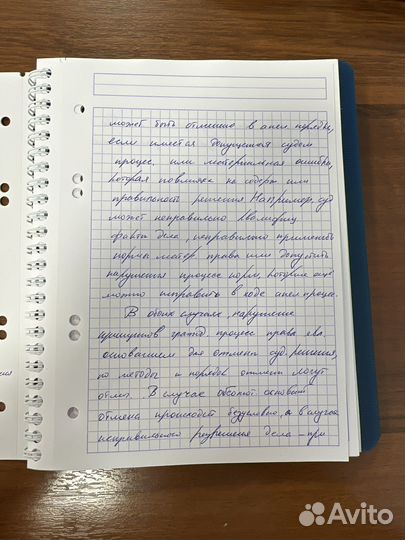 может быть отменено в апел. порядке,
если имеется допущенная судом
процес. или материальная ошибка,
которая повлияла на содерж или
правильность решения Например, суд
может неправильно квалифиц
факты дела, неправильно применить
нормы матер. права или допустить
нарушения процес норм, которые
можно исправить в ходе апел процес.
В обоих случаях, нарушение
принципов гражд. процес права явл.
основанием для отмены суд. решения,
но методы и порядок отмены могут
отлич. В случае обсолют оснований
отмена происходит безусловно, а в случае
неправильного разрешения дела – при
Avito